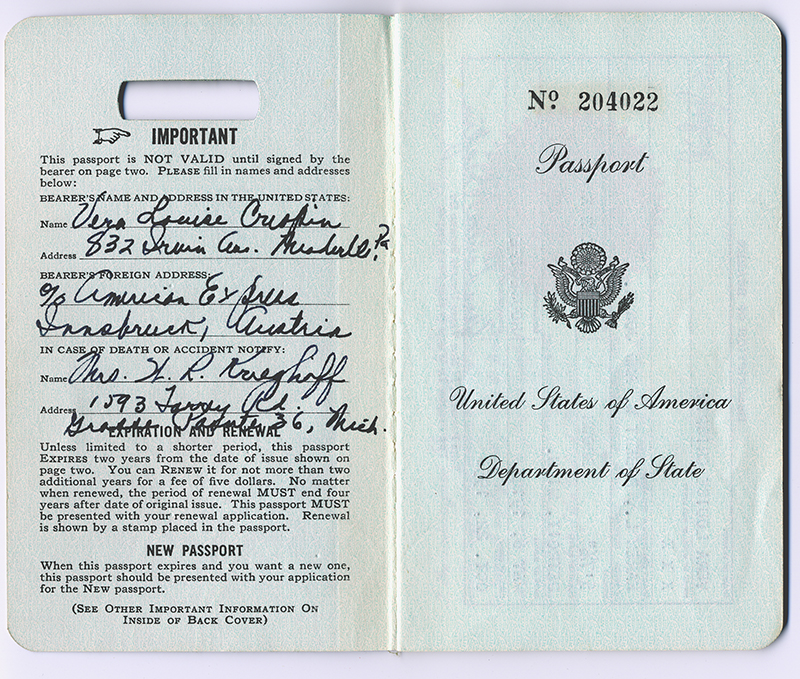 IMPORTANT
This passport is NOT VALID until signed by the
bearer on page two. PLEASE fill in names and addresses
below:
BEARER'S NAME AND ADDRESS IN THE UNITED STATES:
Name Vera Louise Crispin
Address 832 Irvin Av. Pa
BEARER'S FOREIGN ADDRESS:
c/o American Express
Innsbruck, Austria
IN CASE OF DEATH OR ACCIDENT NOTIFY:
Name Mrs. W. R. Krieghoff
Address 1593 Rd.
Grosse Pointe 36, Mich.
EXPIRATION AND RENEWAL
Unless limited to a shorter period, this passport
EXPIRES two years from the date of issue shown on
page two. You can RENEW it for not more than two
additional years for a fee of five dollars. No matter
when renewed, the period of renewal MUST end four
years after date of original issue. This passport MUST
be presented with your renewal application. Renewal
is shown by a stamp placed in the passport.
NEW PASSPORT
When this passport expires and you want a new one,
this passport should be presented with your application
for the NEW passport.
(SEE OTHER IMPORTANT INFORMATION ON
INSIDE OF BACK COVER)
No 204022
Passport
United States of America
Department of State